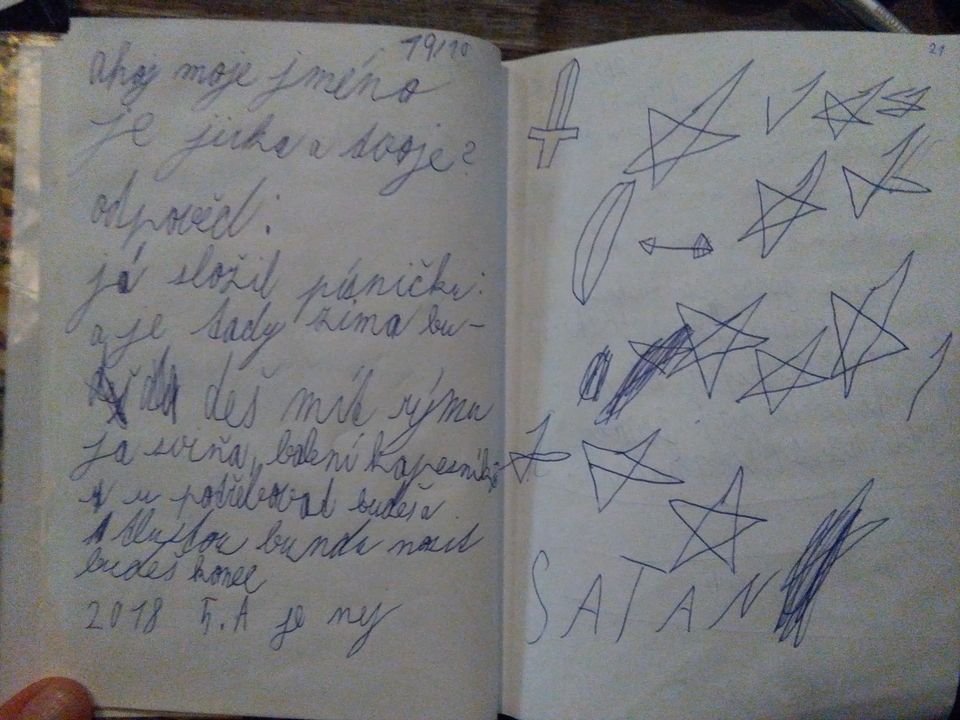 19/10
ahoj moje jméno
je jirka a tvoje?
odpověd:
já složil písničku:
a je tady zima bu-
deš mít rýmu
ja sviňa, balení kapesníků
u potřebovat budeš a
tlustou bundu nosit
budeš konec
2018 5.A je nej
21
SATAN